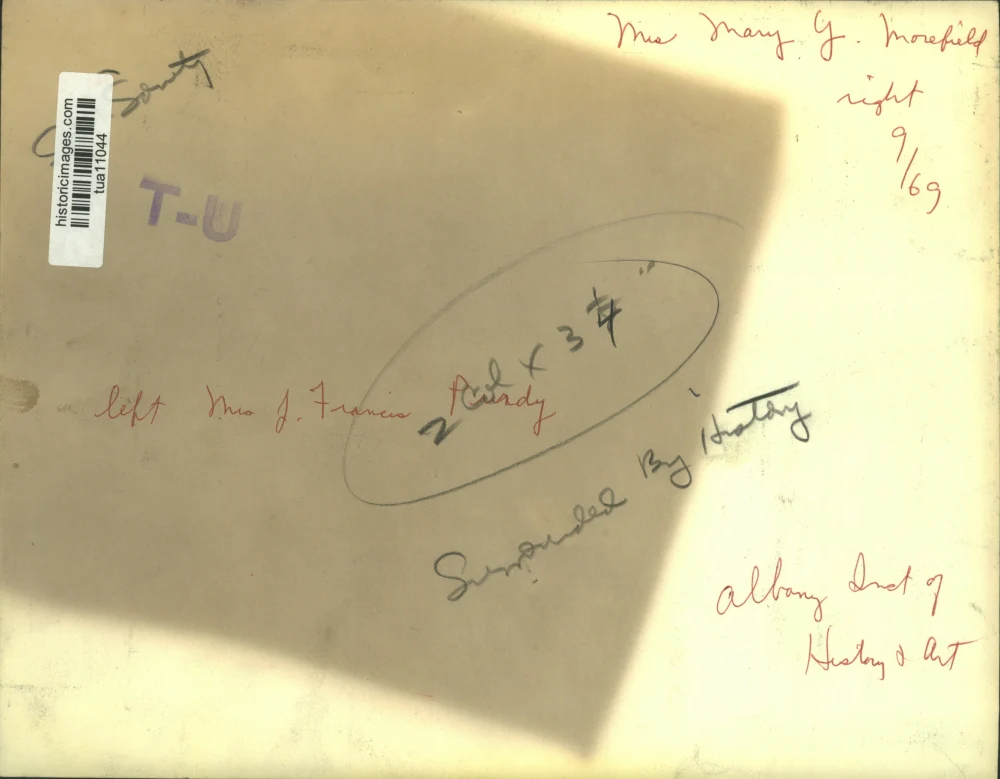 Mrs Mary G. Morefield
right
9/69
historicimages.com
tua11044
T-U
2 Col x 3 1/4"
left Mrs J. Francis Purdy
Surrounded By History
Albany Inst of
History & Art